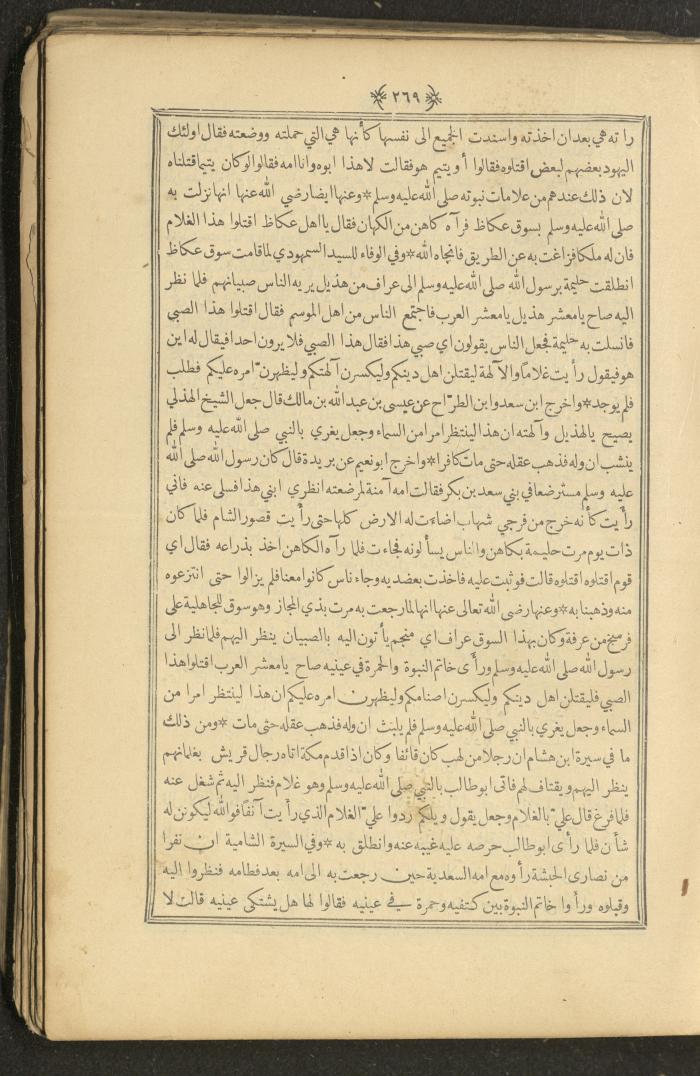 ٢٦٩
رأته هي بعد ان اخذته واسندت الجميع الى نفسها كأنها هي التي حملته ووضعته فقال اولئك
اليهود بعضهم لبعض اقتلوه فقالوا أو يتيم هو فقالت لا هذا ابوه وانا امه فقالوا لو كان يتيما قتلناه
لان ذلك عندهم من علامات نبوته صلى الله عليه وسلم * وعنها ايضا رضي الله عنها انها نزلت به
صلى الله عليه وسلم بسوق عكاظ فرآه كاهن من الكهان فقال يا اهل عكاظ اقتلوا هذا الغلام
فان له ملكا فزاغت به عن الطريق فانجاه الله * وفي الوفاء للسيد السمهودي لما قامت سوق عكاظ
انطلقت حليمة برسول الله صلى الله عليه وسلم الى عراف من هذيل يريه الناس صبيانهم فلما نظر
اليه صاح يا معشر هذيل يا معشر العرب فاجتمع الناس من اهل الموسم فقال اقتلوا هذا الصبي
فانسلت به حليمة فجعل الناس يقولون اي صبي هذا فقال هذا الصبي فلا يرون احدا فيقال له اين
هو فيقول رأيت غلاما والآلهة ليقتلن اهل دينكم وليكسرن آلهتكم وليظهرنّ امره عليكم فطلب
فلم يوجد * واخرج ابن سعد وابن الطرّاح عن عيسى بن عبد الله بن مالك قال جعل الشيخ الهذلي
يصيح يا لهذيل وآلهته ان هذا لينتظر امرا من السماء وجعل يغري بالنبي صلى الله عليه وسلم فلم
ينشب ان وله فذهب عقله حتى مات كافرا * واخرج ابو نعيم عن بريدة قال كان رسول الله صلى الله
عليه وسلم مسترضعا في بني سعد بن بكر فقالت امه آمنة لمرضعته انظري ابني هذا فسلي عنه فاني
رأيت كأنه خرج من فرجي شهاب اضاءت له الارض كلها حتى رأيت قصور الشام فلما كان
ذات يوم مرت حليمة بكاهن والناس يسألونه فجاءت فلما رآه الكاهن اخذ بذراعه فقال اي
قوم اقتلوه اقتلوه قالت فوثبت عليه فاخذت بعضديه وجاء ناس كانوا معنا فلم يزالوا حتى انتزعوه
منه وذهبنا به * وعنها رضي الله تعالى عنها انها لما رجعت به مرت بذي المجاز وهو سوق للجاهلية على
فرسخ من عرفة وكان بهذا السوق عراف اي منجم يأتون اليه بالصبيان ينظر اليهم فلما نظر الى
رسول الله صلى الله عليه وسلم ورأى خاتم النبوة والحمرة في عينيه صاح يا معشر العرب اقتلوا هذا
الصبي فليقتلن اهل دينكم وليكسرن اصنامكم وليظهرن امره عليكم ان هذا لينتظر امرا من
السماء وجعل يغري بالنبي صلى الله عليه وسلم فلم يلبث ان وله فذهب عقله حتى مات * ومن ذلك
ما في سيرة ابن هشام ان رجلا من لهب كان قائفا وكان اذا قدم مكة اتاه رجال قريش بغلمانهم
ينظر اليهم ويقتاف لهم فاتى ابو طالب بالنبي صلى الله عليه وسلم وهو غلام فنظر اليه ثم شغل عنه
فلما فرغ قال عليّ بالغلام وجعل يقول ويلكم ردوا عليّ الغلام الذي رأيت آنفا فوالله ليكونن له
شأن فلما رأى ابو طالب حرصه عليه غيبه عنه وانطلق به * وفي السيرة الشامية ان نفرا
من نصارى الحبشة رأوه مع امه السعدية حين رجعت به الى امه بعد فطامه فنظروا اليه
وقبلوه ورأوا خاتم النبوة بين كتفيه وحمرة في عينيه فقالوا لها هل يشتكي عينيه قالت لا